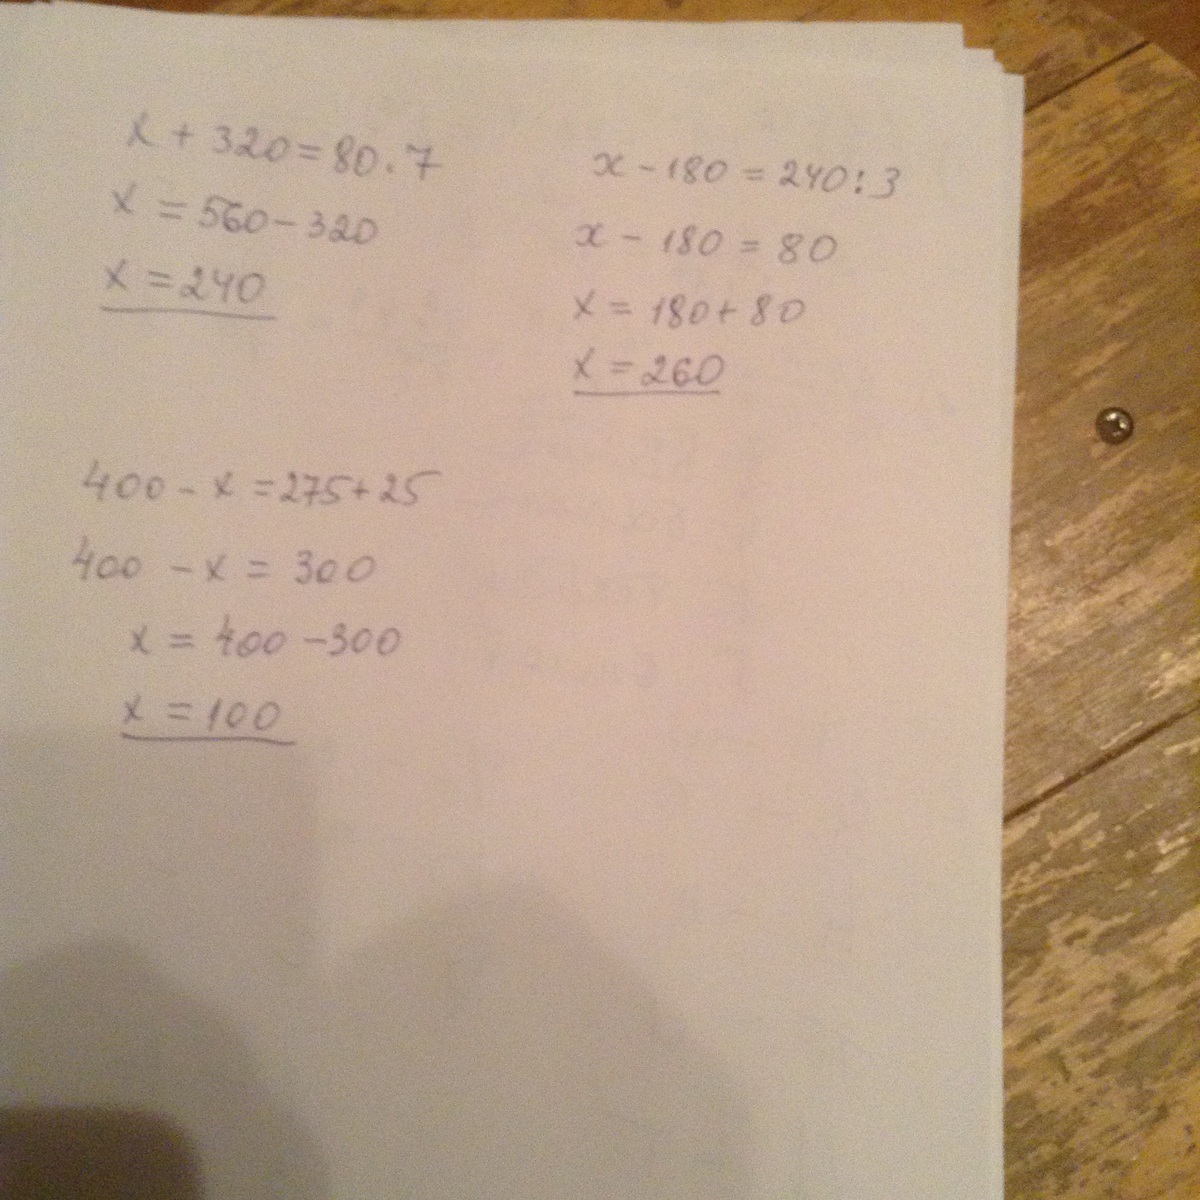 x + 320 = 80 . 7
x = 560 - 320
x = 240
x - 180 = 240 : 3
x - 180 = 80
x = 180 + 80
x = 260
400 - x = 275 + 25
400 - x = 300
x = 400 - 300
x = 100